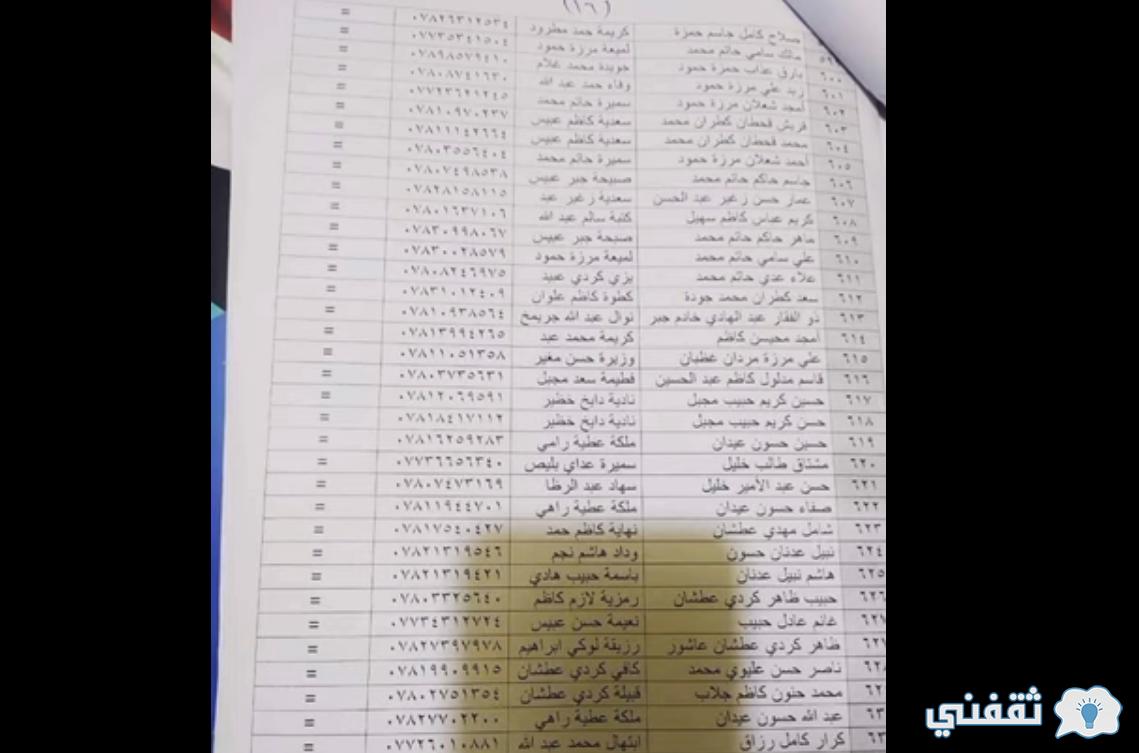 (١٦)
صلاح كامل جاسم حمزة كريمة حمد مطرود ٠٧٨٢٦٣١٢٥٣٤ =
مالك سامي حاتم محمد لميعة مرزة حمود ٠٧٧٣٥٣٤١٥٠٤ =
٦٠٠ بارق عذاب حمزة حمود جويدة محمد غلام ٠٧٨٩٨٥٧٩٤١٠ =
٦٠١ زيد علي مرزة حمود وفاء حمد عبد الله ٠٧٨٠٨٧٤١٦٣٠ =
٦٠٢ أمجد شعلان مرزة حمود سميرة حاتم محمد ٠٧٧٢٣٦٢١٢٤٥ =
٦٠٣ قريش قحطان كطران محمد سعدية كاظم عبيس ٠٧٨١٠٩٧٠٢٣٧ =
٦٠٤ محمد قحطان كطران محمد سعدية كاظم عبيس ٠٧٨١١١٤٢٦٦٤ =
٦٠٥ أحمد شعلان مرزة حمود سميرة حاتم محمد ٠٧٨٠٣٥٥٦٤٠٤ =
٦٠٦ جاسم حاكم حاتم محمد صبيحة جبر عبيس ٠٧٨٠٧٤٩٨٥٣٨ =
٦٠٧ عمار حسن زغير عبد الحسن سعدية زغير عبد ٠٧٨٢٨١٥٨١١٥ =
٦٠٨ كريم عباس كاظم سهيل كتبة سالم عبد الله ٠٧٨٠١٦٣٧١٠٦ =
٦٠٩ ماهر حاكم حاتم محمد صبحة جبر عبيس ٠٧٨٣٠٩٩٨٠٦٧ =
٦١٠ علي سامي حاتم محمد لميعة مرزة حمود ٠٧٨٣٠٠٢٨٥٧٩ =
٦١١ علاء عدي حاتم محمد بزي كردي عبيد ٠٧٨٠٨٢٤٦٩٧٥ =
٦١٢ سعد كطران محمد جودة كطوة كاظم علوان ٠٧٨٣١٠١٢٤٠٩ =
٦١٣ ذو الفقار عبد الهادي خادم جبر نوال عبد الله جريمخ ٠٧٨١٠٩٣٨٥٦٤ =
٦١٤ أمجد محيسن كاظم كريمة محمد عبد ٠٧٨١٣٩٩٤٢٦٥ =
٦١٥ علي مرزة مردان غظبان وزيرة حسن مغير ٠٧٨١١٠٥١٣٥٨ =
٦١٦ قاسم مدلول كاظم عبد الحسين فطيمة سعد مجبل ٠٧٨٠٣٧٣٥٦٣١ =
٦١٧ حسين كريم حبيب مجبل نادية دايخ خظير ٠٧٨١٢٠٦٩٥٩١ =
٦١٨ حسن كريم حبيب مجبل نادية دايخ خظير ٠٧٨١٨٤١٧١١٢ =
٦١٩ حسين حسون عيدان ملكة عطية رامي ٠٧٨١٦٢٥٩٢٨٣ =
٦٢٠ مشتاق طالب خليل سميرة عداي بليص ٠٧٧٣٦٦٥٦٣٤٠ =
٦٢١ حسن عبد الأمير خليل سهاد عبد الرظا ٠٧٨٠٧٤٧٣١٦٩ =
٦٢٢ صفاء حسون عيدان ملكة عطية راهي ٠٧٨١١٩٤٤٧٠١ =
٦٢٣ شامل مهدي عطشان نهاية كاظم حمد ٠٧٨١٧٥٤٠٤٢٧ =
٦٢٤ نبيل عدنان حسون وداد هاشم نجم ٠٧٨٢١٣١٩٥٤٦ =
٦٢٥ هاشم نبيل عدنان باسمة حبيب هادي ٠٧٨٢١٣١٩٤٢١ =
٦٢٦ حبيب ظاهر كردي عطشان رمزية لازم كاظم ٠٧٨٠٣٣٢٥٦٤٠ =
٦٢٧ غانم عادل حبيب نعيمة حسن عبيس ٠٧٧٣٤٣١٢٧٢٤ =
٦٢٧ ظاهر كردي عطشان عاشور رزيقة لوكي ابراهيم ٠٧٨٢٧٣٩٧٩٧٨ =
٦٢٨ ناصر حسن عليوي محمد كافي كردي عطشان ٠٧٨١٩٩٠٩٩١٥ =
محمد حنون كاظم جلاب قبيلة كردي عطشان ٠٧٨٠٢٧٥١٣٥٤ =
عبد الله حسون عيدان ملكة عطية راهي ٠٧٨٢٧٧٠٢٢٠٠ =
كرار كامل رزاق ابتهال محمد عبد الله ٠٧٧٢٦٠١٠٨٨١ =
ثقفني